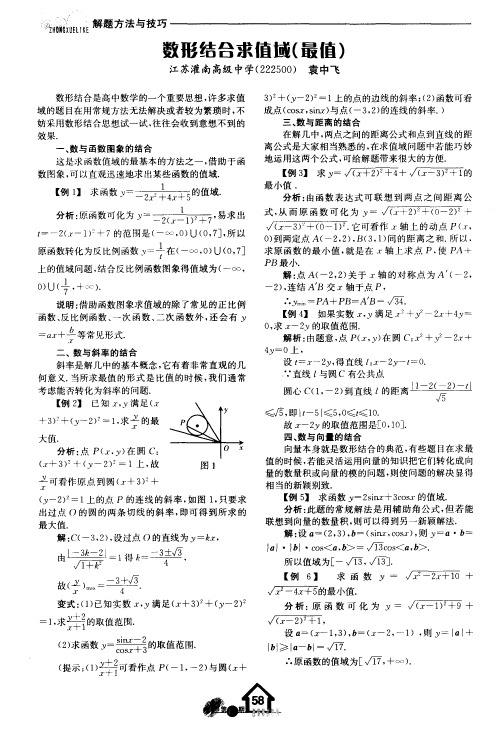 ZHONGXUELIKE 解题方法与技巧
数形结合求值域(最值)
江苏灌南高级中学(222500) 袁中飞
数形结合是高中数学的一个重要思想,许多求值
域的题目在用常规方法无法解决或者较为繁琐时,不
妨采用数形结合思想试一试,往往会收到意想不到的
效果.
一、数与函数图象的结合
这是求函数值域的最基本的方法之一,借助于函
数图象,可以直观迅速地求出某些函数的值域.
【例1】 求函数 y=1/(-2x²+4x+5)的值域.
分析:原函数可化为 y=1/(-2(x-1)²+7),易求出
t=-2(x-1)²+7 的范围是(-∞,0)∪(0,7],所以
原函数转化为反比例函数 y=1/t 在(-∞,0)∪(0,7]
上的值域问题,结合反比例函数图象得值域为(-∞,
0)∪(1/7,+∞).
说明:借助函数图象求值域的除了常见的正比例
函数、反比例函数、一次函数、二次函数外,还有 y
=ax+b/x等常见形式.
二、数与斜率的结合
斜率是解几中的基本概念,它有着非常直观的几
何意义.当所求最值的形式是比值的时候,我们通常
考虑能否转化为斜率的问题.
【例2】 已知 x,y 满足(x
+3)²+(y-2)²=1,求y/x的最
大值.
分析:点 P(x,y)在圆 C:
(x+3)²+(y-2)²=1 上,故
y/x可看作原点到圆(x+3)²+
P
y
O
x
图1
(y-2)²=1上的点 P 的连线的斜率,如图 1,只要求
出过点 O 的圆的两条切线的斜率,即可得到所求的
最大值.
解:C(-3,2),设过点 O 的直线为 y=kx,
由|-3k-2|/√(1+k²)=1 得 k=(-3±√3)/4,
故(y/x)max=(-3+√3)/4.
变式:(1)已知实数 x,y 满足(x+3)²+(y-2)²
=1,求(y+2)/(x+1)的取值范围.
(2)求函数 y=(sinx-2)/(cosx+3)的取值范围.
(提示:(1)(y+2)/(x+1)可看作点 P(-1,-2)与圆(x+
3)²+(y-2)²=1 上的点的边线的斜率;(2)函数可看
成点(cosx,sinx)与点(-3,2)的连线的斜率.)
三、数与距离的结合
在解几中,两点之间的距离公式和点到直线的距
离公式是大家相当熟悉的,在求值域问题中若能巧妙
地运用这两个公式,可给解题带来很大的方便.
【例3】 求 y=√((x+2)²+4)+√((x-3)²+1)的
最小值.
分析:由函数表达式可联想到两点之间距离公
式,从而原函数可化为 y=√((x+2)²+(0-2)²)+
√((x-3)²+(0-1)²).它可看作 x 轴上的动点 P(x,
0)到两定点 A(-2,2),B(3,1)间的距离之和.所以,
求原函数的最小值,就是在 x 轴上求点 P,使 PA+
PB 最小.
解:点 A(-2,2)关于 x 轴的对称点为 A′(-2,
-2),连结 A′B 交 x 轴于点 P,
∴ymin=PA+PB=A′B=√34.
【例4】 如果实数 x,y 满足 x²+y²-2x+4y=
0,求 x-2y 的取值范围.
解析:由题意,点 P(x,y)在圆 C:x²+y²-2x+
4y=0 上,
设 t=x-2y,得直线 l:x-2y-t=0.
∵直线 l 与圆 C 有公共点
圆心 C(1,-2)到直线 l 的距离|1-2(-2)-t|/√5
≤√5,即|t-5|≤5,0≤t≤10.
故 x-2y 的取值范围是[0,10].
四、数与向量的结合
向量本身就是数形结合的典范,有些题目在求最
值的时候,若能灵活运用向量的知识把它们转化成向
量的数量积或向量的模的问题,则使问题的解决显得
相当的新颖别致.
【例5】 求函数 y=2sinx+3cosx 的值域.
分析:此题的常规解法是用辅助角公式,但若能
联想到向量的数量积,则可以得到另一新颖解法.
解:设 a=(2,3),b=(sinx,cosx),则 y=a·b=
|a|·|b|·cos<a,b>=√13cos<a,b>.
所以值域为[-√13,√13].
【例6】 求函数 y=√(x²-2x+10)+
√(x²-4x+5)的最小值.
分析:原函数可化为 y=√((x-1)²+9)+
√((x-2)²+1),
设 a=(x-1,3),b=(x-2,-1),则 y=|a|+
|b|≥|a-b|=√17.
∴原函数的值域为[√17,+∞).
58